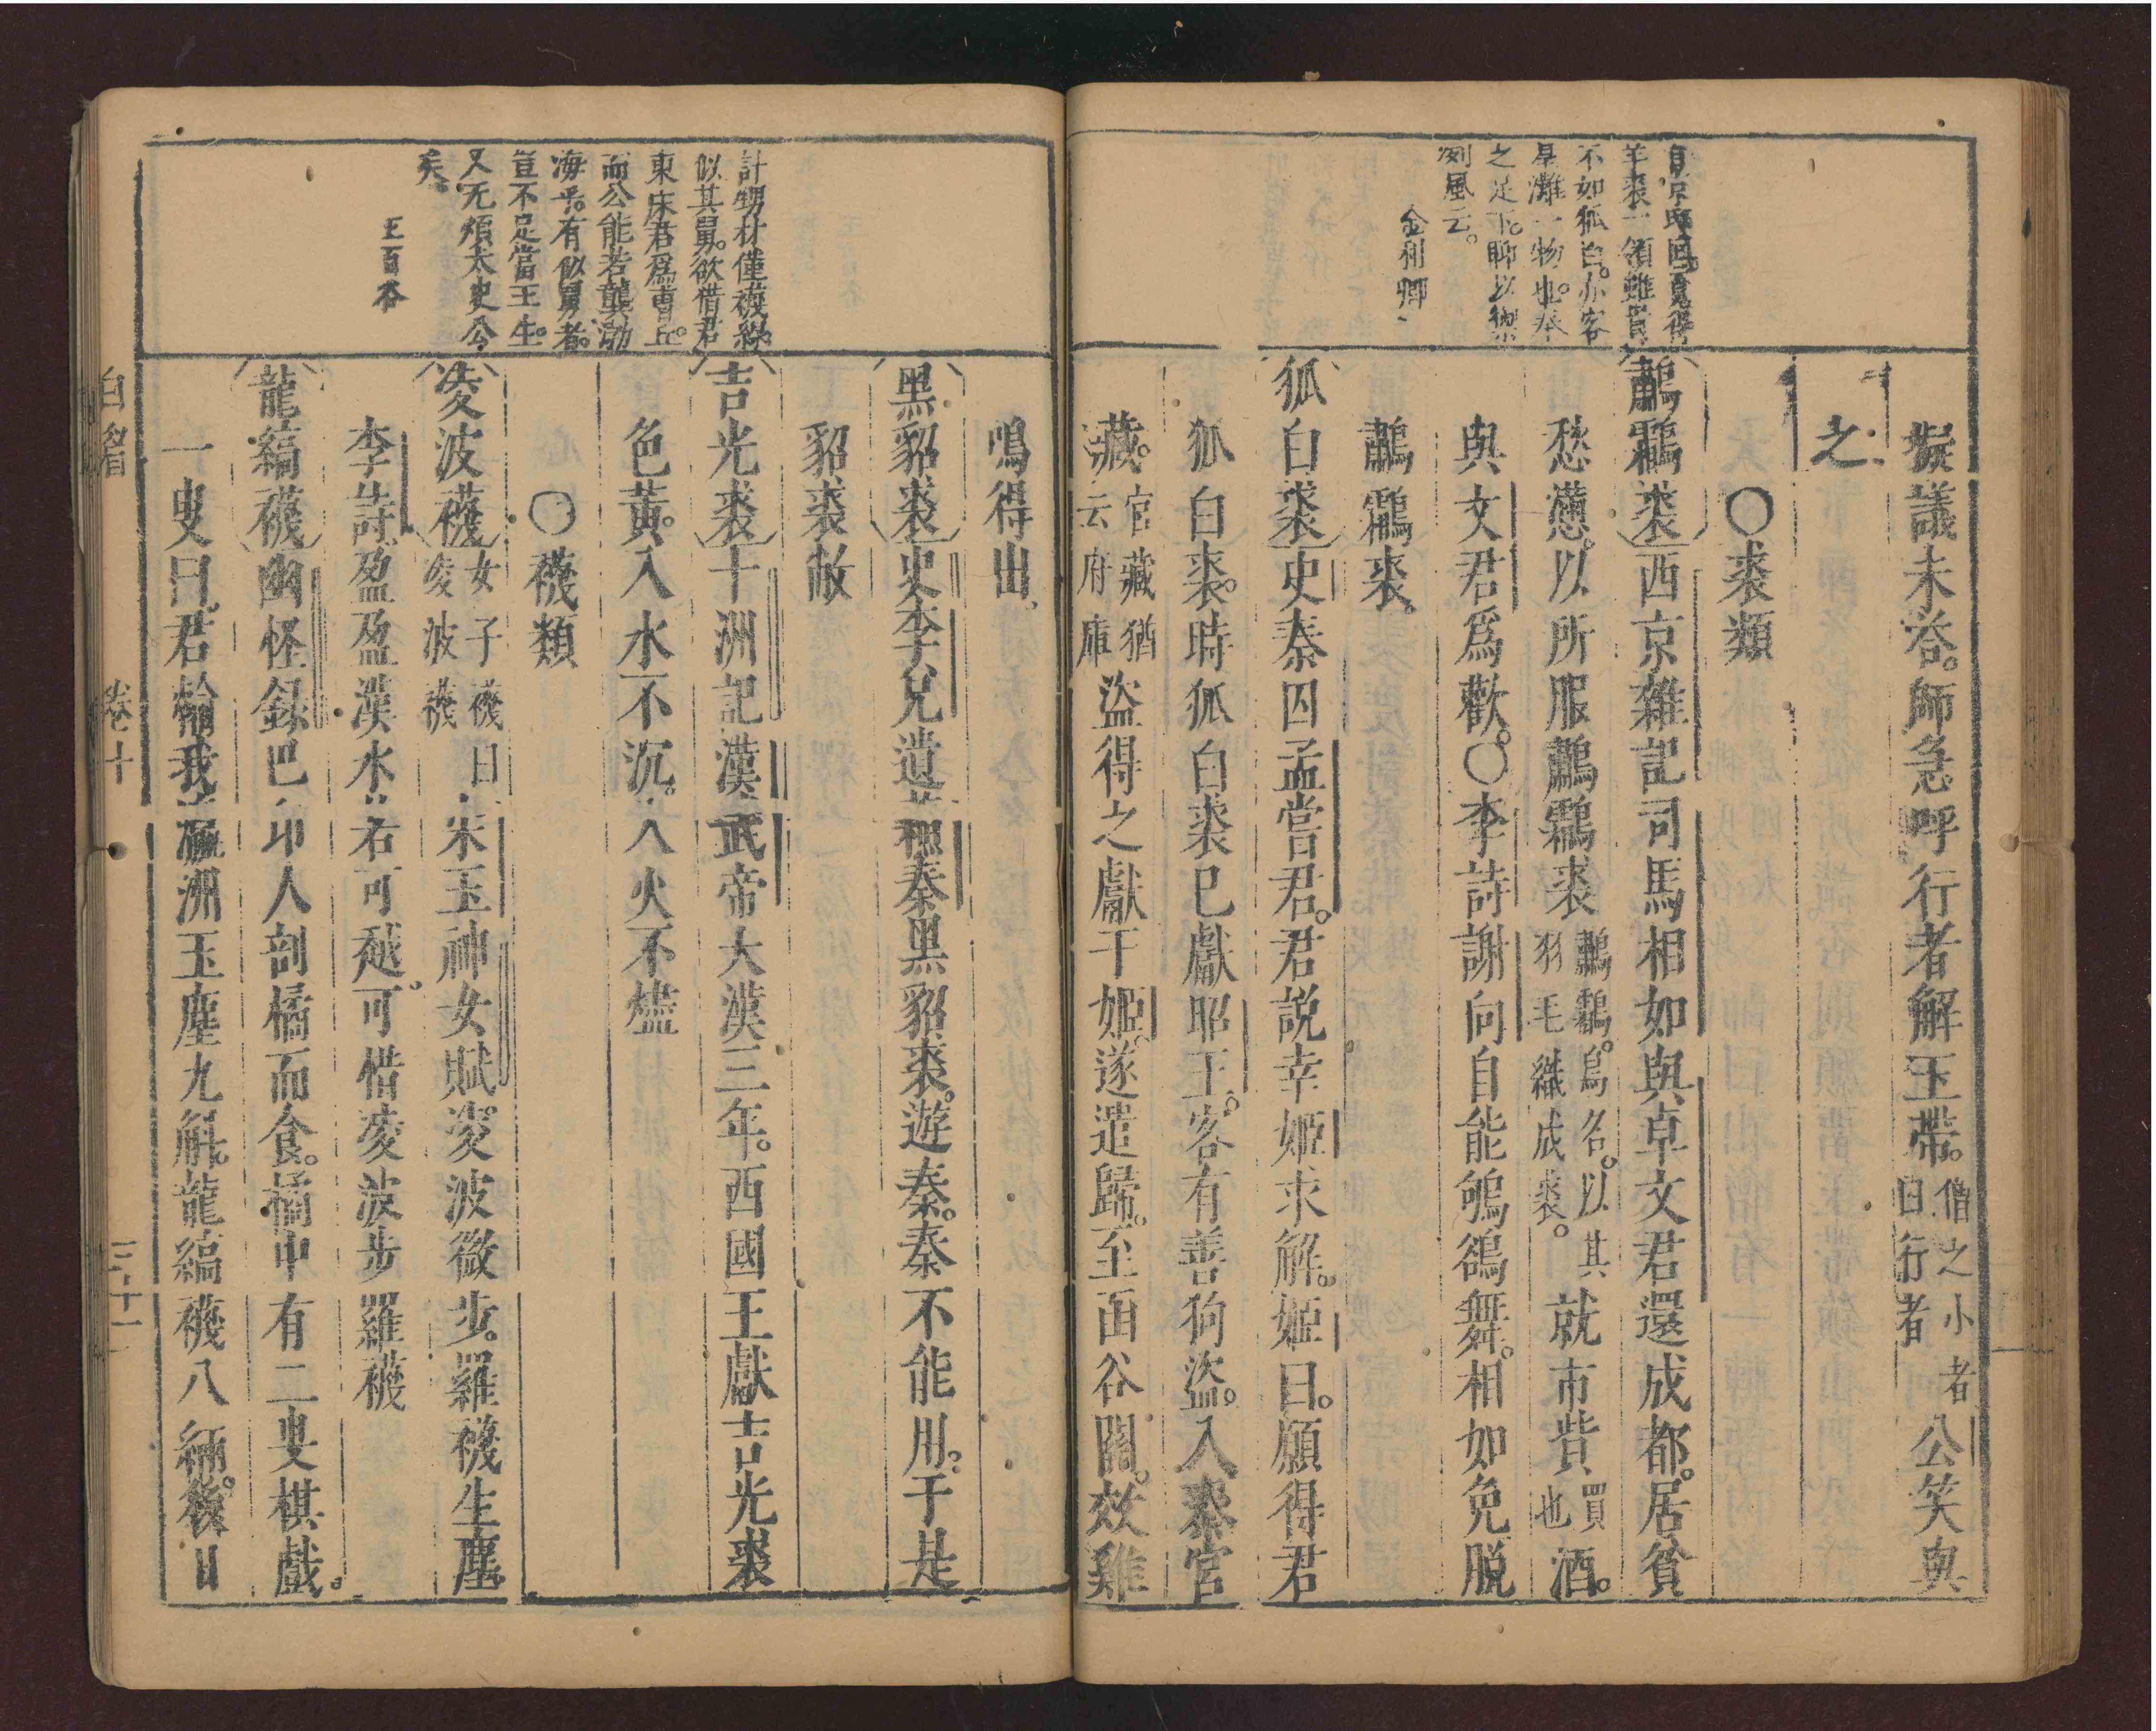 羊裘一領雖貴
不如狐白。亦客
星灘一物也。奉
之足下。聊以禦
冽風云。
擬議未答。師急呼行者解玉帶。僧之小者曰行者公笑與
之
〇裘類
鷫鸘裘西京雜記司馬相如與卓文君還成都。居貧
愁懣。以所服鷫鸘裘鷫鸘。鳥名。以其羽毛織成裘。就市貰買也酒。
與文君爲歡。〇李詩謝尚自能鴝鵒舞。相如免脫
鷫鸘裘。
狐白裘史秦囚孟嘗君。君說幸姬求解。姬曰。願得君
狐白裘。時狐白裘已獻昭王。客有善狗盜。入秦宮
藏。官藏猶云府庫盜得之獻于姬。遂遣歸。至函谷關。效雞
計甥材僅襪線。
似其舅。欲借君
東床君爲曹丘。
而公能若龔渤
海乎。有似舅者。
豈不足當王生。
又无煩太史公
矣。
王百谷
鳴得出
黑貂裘史李兌遺蘇秦黑貂裘。遊秦。秦不能用。于是
貂裘敝
吉光裘十洲記漢武帝大漢三年。西國王獻吉光裘
色黃。入水不沉。入火不燼
〇襪類
凌波襪女子襪曰凌波襪宋玉神女賦凌波微步。羅襪生塵
李詩盈盈漢水若可越。可惜凌波步羅襪
龍縞襪幽怪錄巴卭人剖橘而食。橘中有二叟棋戲。
一叟曰。君輸我瀛洲玉塵九斛。龍縞襪八緉。後日
白眉 卷十 三十一